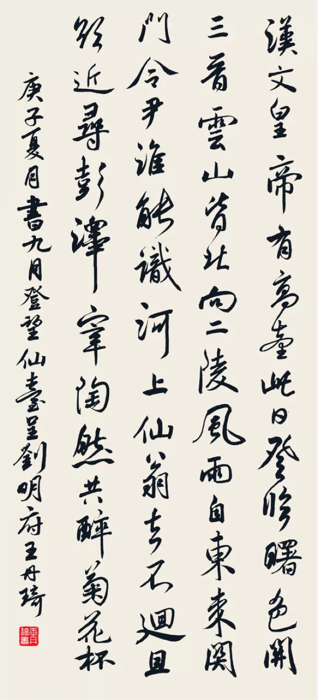 漢文皇帝有高臺此日登臨曙色開
三晉雲山皆北向二陵風雨自東來関
門令尹誰能識河上仙翁去不迴且
欲近尋彭澤宰陶然共醉菊花杯
庚子夏月書九月登望仙臺呈劉明府王丹琦